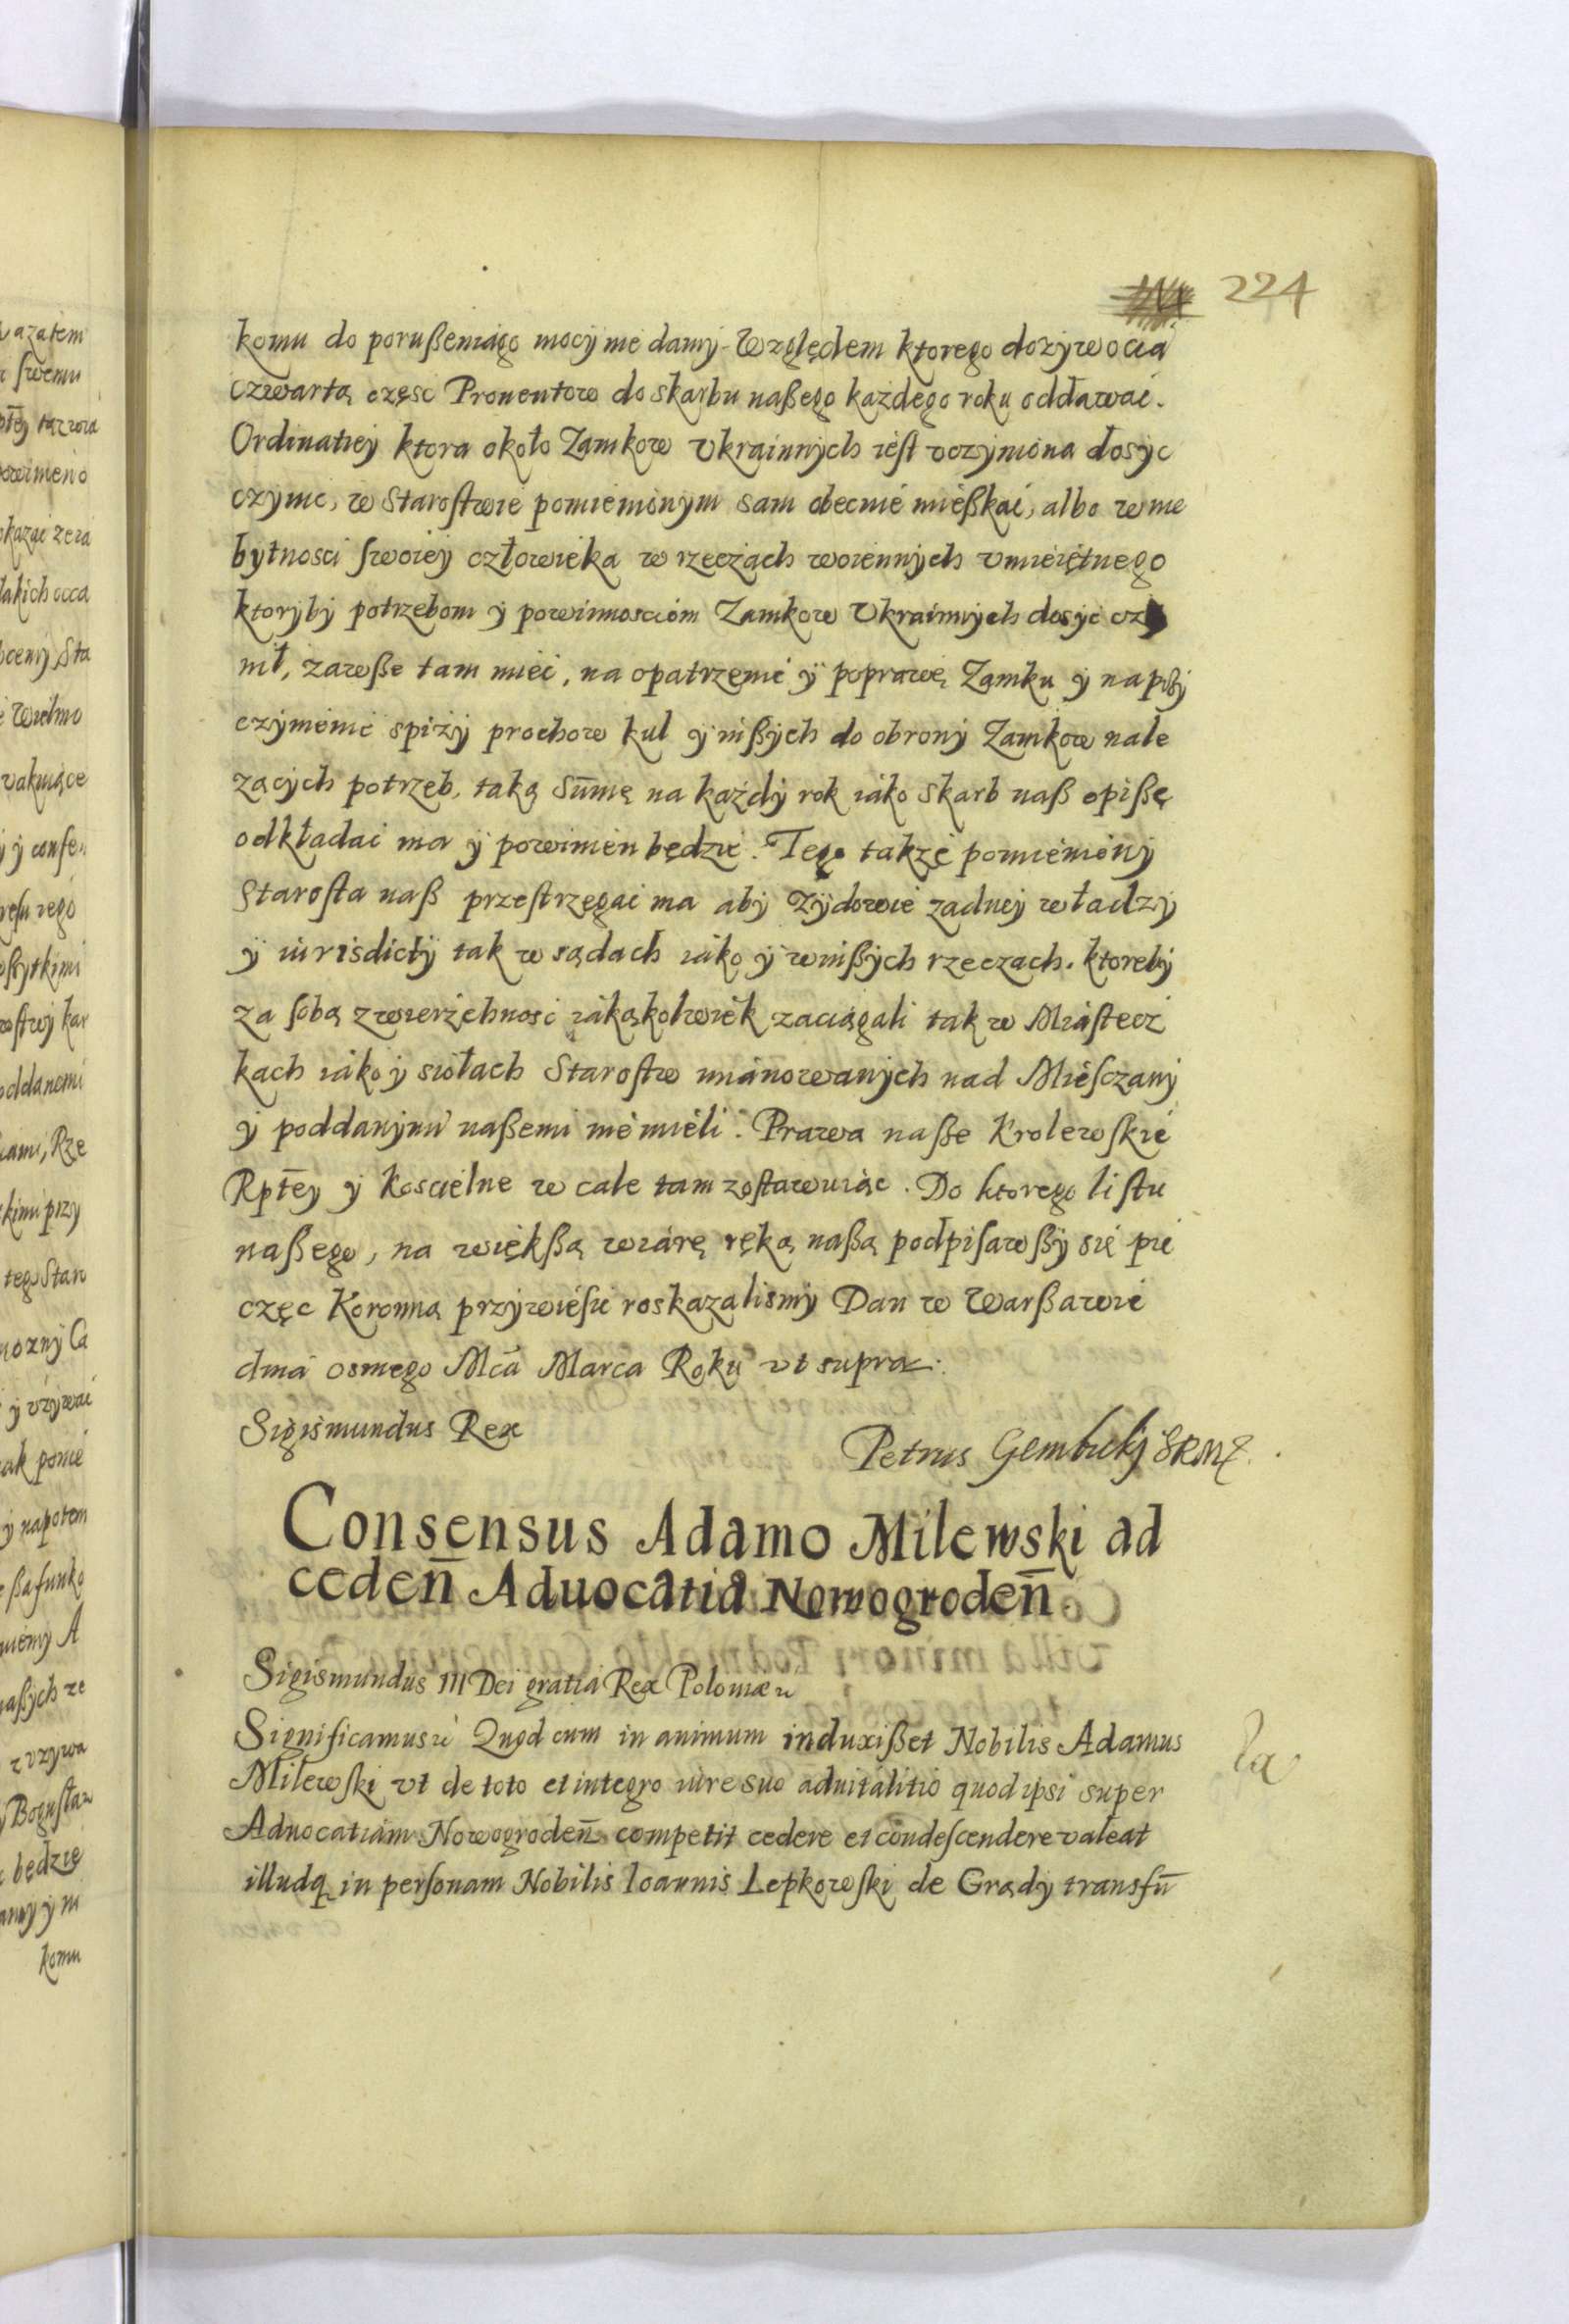 224
komu do porußeniago mocy nie damy. Względem ktorego dożywocia
czwartą częsc Prouentow do skarbu naßego każdego roku oddawać.
Ordinatiey ktora około Zamkow Vkrainnych iest vczyniona dosyc
czynić, w Starostwie pomienionym sam obecnie mießkać, albo w nie
bytnosci swoiey człowieka w rzeczach woiennych vmieiętnego
ktoryby potrzebom ÿ powinnosciom Zamkow Vkrainnych dosyć czÿ
nił, zawße tam mieć, na opatrzenie ÿ poprawę Zamku ÿ na przÿ
czynienie spiży prochow kul ÿ inßych do obrony Zamkow nale
zących potrzeb, taką sum̄ę na każdy rok iako skarb naß opißę
odkładać ma ÿ powinien będzie. Tego także pomieniony
Starosta naß przestrzegać ma aby Zÿdowie zadney władzy
ÿ iurisdictÿ tak w sądach iako ÿ w inßych rzeczach. ktoreby
za sobą zwierzchnosc iakąkolwiek zaciągali tak w Miastecz
kach iako ÿ siołach Starostw mianowanych nad Miesczany
ÿ poddanymi naßemi nie mieli. Prawa naße Krolewskie
Rptēy ÿ Koscielne w cale tam zostawuiąc. Do ktorego listu
naßego, na więkßą wiarę ręką naßą podpisawßy się pie
częc Koronną przywiesić roskazalismy Dan w Warßawie
dnia osmego Mcā Marca Roku vt supra.
Sigismundus Rex
Petrus Gembicky SRMq.
Consensus Adamo Milewski ad
ceden̄ Aduocatia Nowogroden̄
Sigismundus III Dei gratia Rex Poloniæ
Significamus Quod cum in animum induxißet Nobilis Adamus
Milewski vt de toto et integro iure suo aduitalitio quod ipsi super
Aduocatiam Nowogroden̄ competit cedere et condescendere valeat
illudq in personam Nobilis Ioannis Lepkowski de Grądy transfū